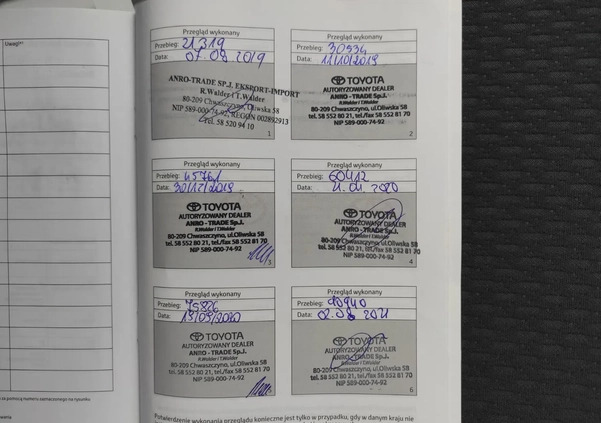 Uwagi**
Przegląd wykonany
Przebieg: 21319
Data: 07.08 2019
ANRO-TRADE SP.J. EKSPORT-IMPORT
R.Walder i T.Walder
80-209 Chwaszczyno, ul.Oliwska 58
NIP 589-000-74-92, REGON 002892913
Tel. 58 520 94 10
1
Przegląd wykonany
Przebieg: 30934
Data: 11/10/2019
TOYOTA
AUTORYZOWANY DEALER
ANRO - TRADE Sp.J.
R.Walder i T.Walder
80-209 Chwaszczyno, ul.Oliwska 58
tel. 58 552 80 21, tel./fax 58 552 81 70
NIP 589-000-74-92
2
Przegląd wykonany
Przebieg: 45761
Data: 30/12/2019
TOYOTA
AUTORYZOWANY DEALER
ANRO - TRADE Sp.J.
R.Walder i T.Walder
80-209 Chwaszczyno, ul.Oliwska 58
tel. 58 552 80 21, tel./fax 58 552 81 70
NIP 589-000-74-92
3
Przegląd wykonany
Przebieg: 60412
Data: 2020
TOYOTA
AUTORYZOWANY DEALER
ANRO - TRADE Sp.J.
R.Walder i T.Walder
80-209 Chwaszczyno, ul.Oliwska 58
tel. 58 552 80 21, tel./fax 58 552 81 70
NIP 589-000-74-92
4
Przegląd wykonany
Przebieg: 75826
Data: 2020
TOYOTA
AUTORYZOWANY DEALER
ANRO - TRADE Sp.J.
R.Walder i T.Walder
80-209 Chwaszczyno, ul.Oliwska 58
tel. 58 552 80 21, tel./fax 58 552 81 70
NIP 589-000-74-92
Przegląd wykonany
Przebieg: 90940
Data: 02.08 2021
TOYOTA
AUTORYZOWANY DEALER
ANRO - TRADE Sp.J.
R.Walder i T.Walder
80-209 Chwaszczyno, ul.Oliwska 58
tel. 58 552 80 21, tel./fax 58 552 81 70
NIP 589-000-74-92
6
za pomocą numeru zaznaczonego na rysunku.
Potwierdzenie wykonania przeglądu konieczne jest tylko w przypadku, gdy w danym kraju nie